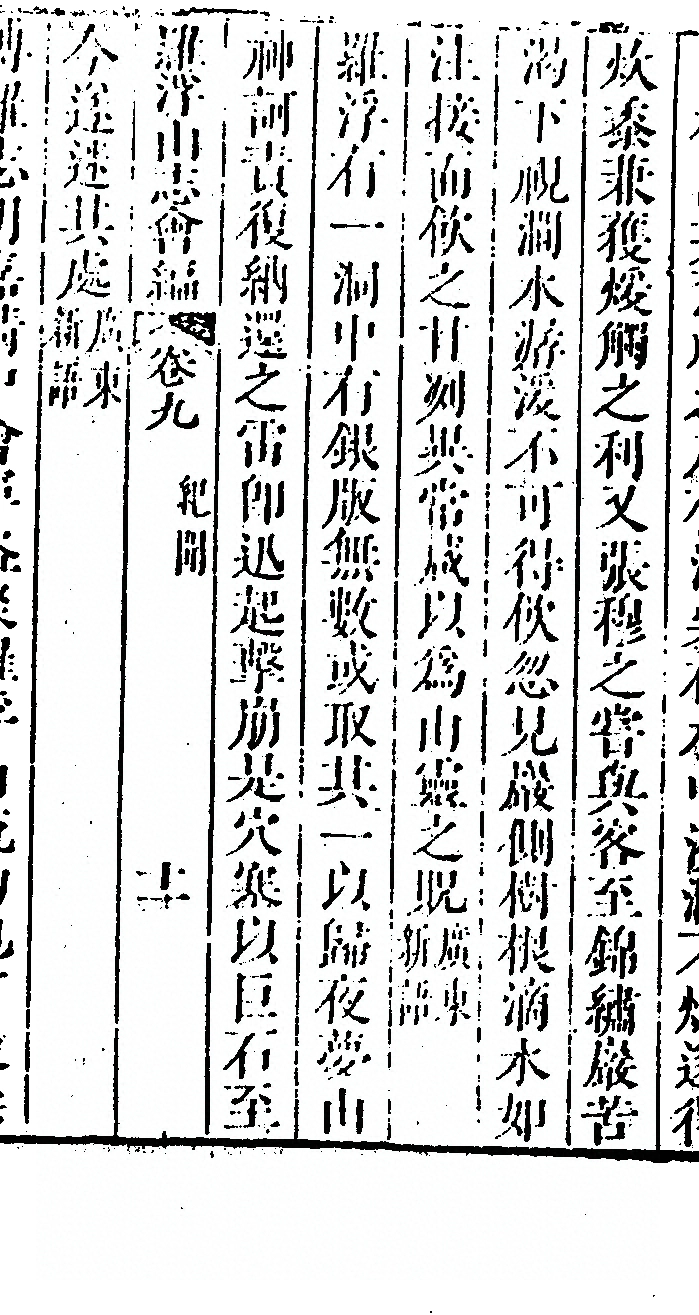 炊黍兼獲煖觴之利又張穆之嘗與客至錦繡巖苦
渴下視澗水潺湲不可得飲忽見巖側樹根滴水如
注接而飲之甘冽異常咸以爲山靈之貺廣東新語
羅浮有一洞中有銀版無數或取其一以歸夜夢山
神訶責復納還之雷即迅起擊崩是穴衆以巨石至
羅浮山志會編 卷九 紀聞
今遂迷其處廣東新語